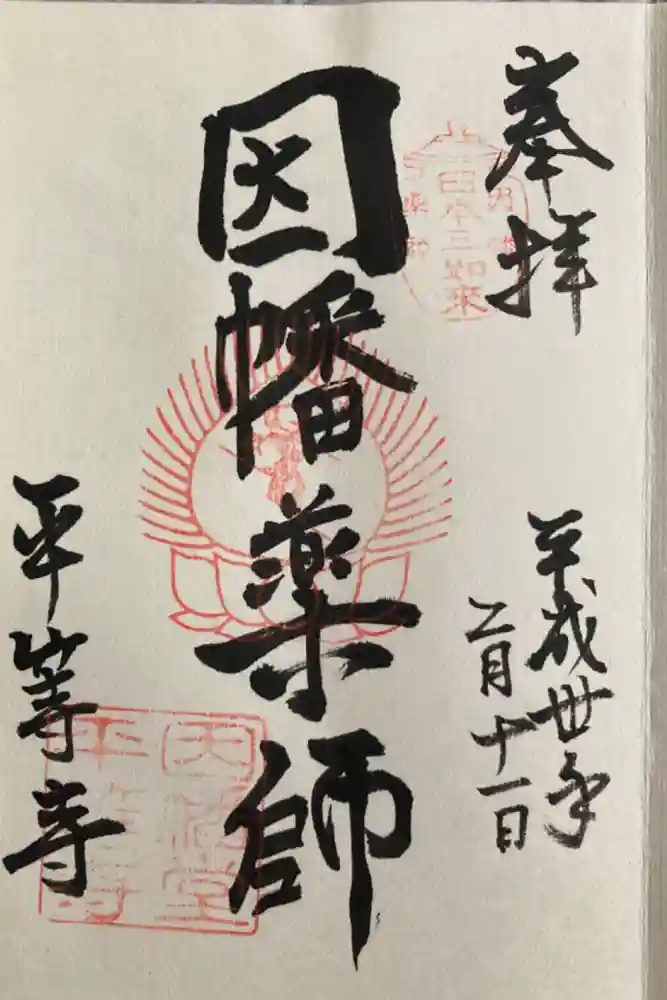 奉拝
平成卅年
二月十一日
因幡薬師
平等寺
日本三如来
因幡
薬師
因幡堂
平等寺